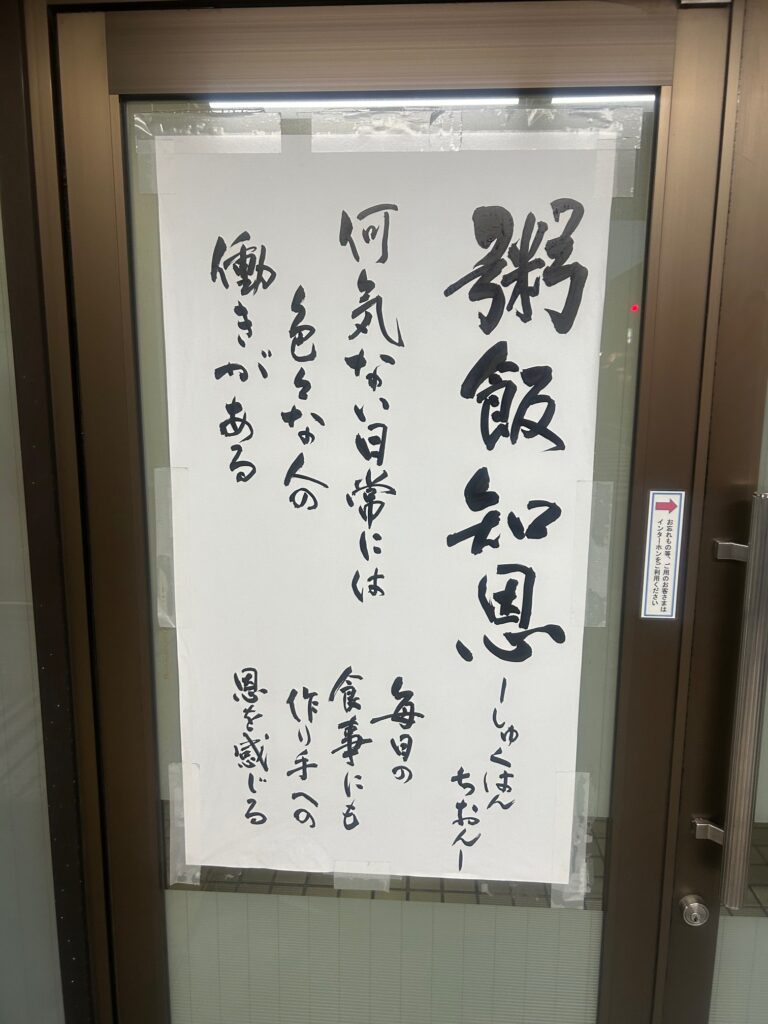 粥飯知恩
ーしゅくはん
ちおんー
何気ない日常には
色々な人の
働きがある
毎日の
食事にも
作り手への
恩を感じる
お忘れもの等、ご用のお客さまは
インターホンをご利用ください